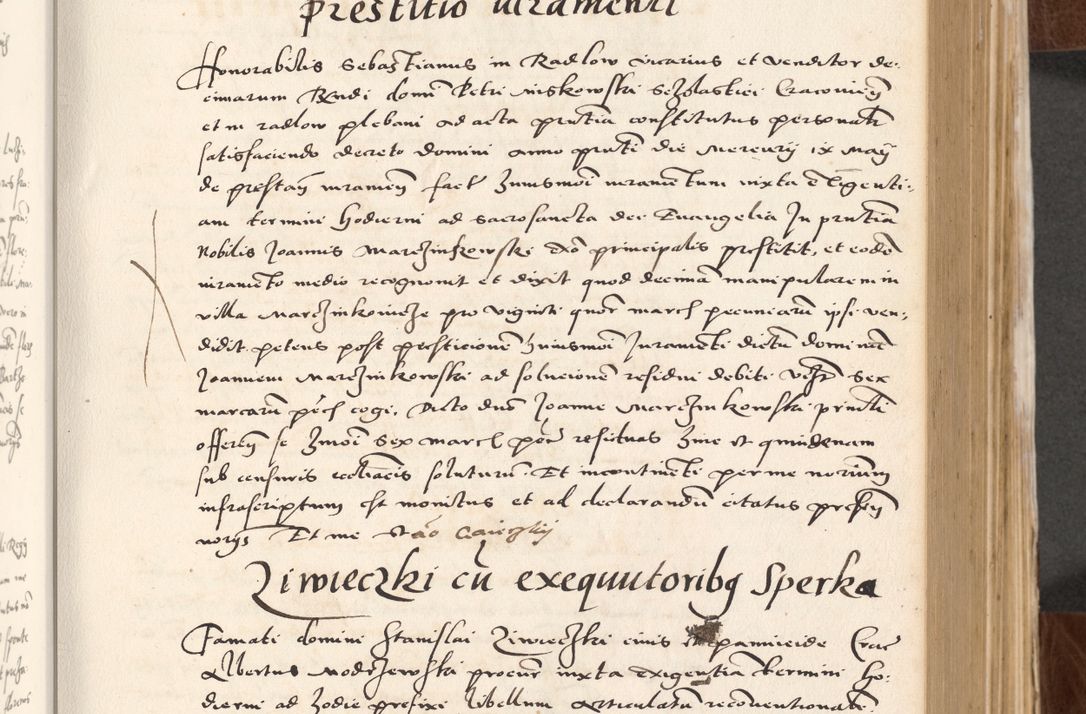 prestitio iuramenti
Honorabilis Sebastianus in Radlow vicarius et venditor de-
cimarum Rndi domi Petri Miskowski Scholastici Cracovien
et in radlow plebani ad acta prntia constitutus personalr
satisfaciendo decreto domini anno prnti die Mercurij ix Maij
de prestan iuramen fact huiusmoi iuramentum iuxta exigenti-
am termini hodierni ad sacrosancta dei Euangelia In prntia
Nobilis Joannis Marczinkowski exo principalis prestitit, et eode
iuramento medio recognouit et dixit quod decimam manipularem in
villa Marczinkowicze pro viginti quor march pecuniaru ipsi ven-
didit petens post presticione huiusmoi Juramenti dictu dominu
Joannem Marczinkowski ad solucione residui debiti vidz sex
marcaru pech cogi, Dicto dno Joanne Marczinkowski prnte
offeren se hmoi sex march pecu residuas hinc et quindenam
sub censuris eccliacis soluturu. Et incontinenti per me notarium
infrascriptum est monitus et ad declarandu citatus presen
Et me
Ziwieczki cu exequutoribg Sperka
Famati domini Stanislai Ziwieczki civis pannicide Crac
Albertus Modrzewski procur iuxta exigentia termini ho-
dierni ad hodie prefixi libellum articulatu reconventionale